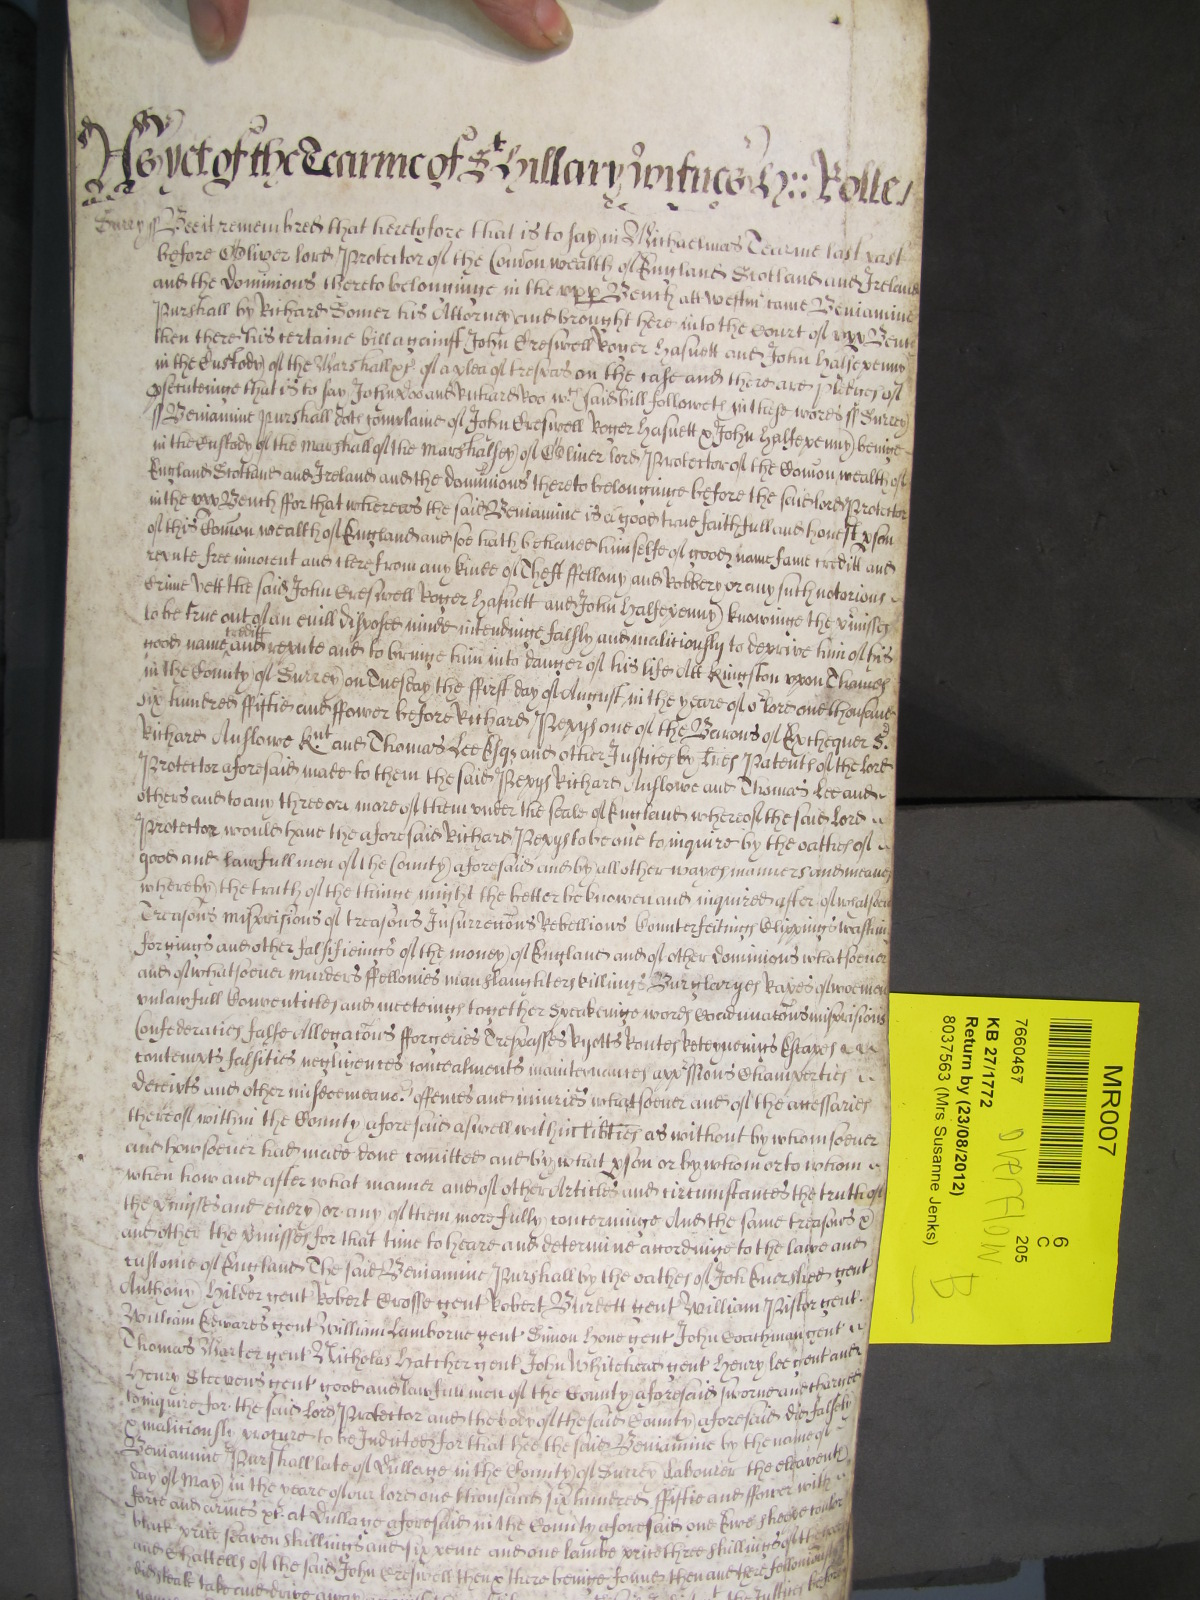 As yet of the Tearme of St Hillary witnes H:: Rolle
Surry ss Bee it remembred that heretofore that is to say in Michaelmas Tearme last past
before Oliver lord Protector of the Comon wealth of England Scotland and Ireland
and the Dominions thereto belonginge in the upp Bench att westm came Beniamine
Purshall by Richard Somer his Attorney and brought here into the Court of upp Bench
then there his certaine bill against John Creswell Roger Hasnett and John Halfepenny
in the Custody of the Marshall &c of a plea of trespas on the case and there are pledges of
psecutinge that is to say John Doo and Richard Roo wch said bill followeth in these words ss Surrey
ss Beniamine Purshall doth complaine of John Creswell Roger Hasnett & John Halfepenny beinge
in the Custody of the Marshall of the Marshalsey of Oliver lord Protector of the Comon wealth of
England Scotland and Ireland and the dominions thereto belonginge before the said lord Protector
in the upp Bench ffor that whereas the said Beniamine is a good true faithfull and honest pson
of this Comon wealth of England and soe hath behaved himselfe of good name fame creditt and
repute free inocent and cleere from any kinde of Theft ffellony and Robbery or any such notorious
Crime Yett the said John Creswell Roger Hasnett and John Halfepenny knowinge the pmisses
to be true out of an evill disposed minde intendinge falsly and malitiously to deprive him of his
good name creditt and repute and to bringe him into danger of his life Att Kingston upon Thames
in the County of Surrey on Tuesday the ffirst day of August in the yeare of or lord one thousand
six hundred ffiftie and ffower before Richard Pepys one of the Barons of Exchequer Sr
Richard Onslowe Knt and Thomas Lee Esqs and other Justices by tres Patents of the lord
Protector aforesaid made to them the said Pepys Richard Onslowe and Thomas Lee and
others and to any three or more of them under the seale of England whereof the said Lord
Protector would have the aforesaid Richard Pepys to be one to inquire by the oathes of
good and lawfull men of the County aforesaid and by all other wayes manners and meanes
whereby the truth of the thinge might the better be knowen and inquired after of whatsoever
Treasons misprisions of treasons Insurrections Rebellions Counterfeitings Clippings washings
forgings and other falsifieings of the money of England and of other dominions whatsoever
and of whatsoever murders ffellonies manslaughters killings Burglaryes Rapes of woemen
unlawfull Conventicles and meetings together speakeinge words misprisions
Confederacies false Allegacons fforgeries Trespasses Ryotts Routes Reteyneings Escapes
contempts falsities negligences concealments maintenances oppssions Champerties
deceipts and other misdeemeanrs offences and iniuries whatsoever and of the accessaries
thereof within the County aforesaid aswell within liberties as without by whomsoever
and howsoever had made done comitted and by what pson or by whom or to whom
when how and after what manner and of other Articles and circumstances the truth of
the pmisses and every or any of them more fully concerninge And the same treasons &
and other the pmisses for that time to heare and determine accordinge to the lawe and
custome of England The said Beniamine Purshall by the oathes of Joh Evershed gent
Anthony Hilder gent Robert Crosse gent Robert Burdett gent William Pistor gent
William Edwards gent William Lamborne gent Simon Hone gent John Coachman gent
Thomas Marter gent Nicholas Hatcher gent John Whitehead gent Henry Lee gent and
Henry Steevens gent good and lawfull men of the County aforesaid sworne and charged
to inquire for the said lord Protector and the body of the said County aforesaid did falsely
& malitiously procure to be Indicted for that hee the said Beniamine by the name of
Beniamine Purshall late of Dullege in the County of Surrey Labourer the eleaventh
day of May in the yeare of our lord one thousand six hundred ffiftie and ffower with
force and armes &c at Dullage aforesaid in the County aforesaid one Ewe sheepe coulor
blacke price seaven shillings and six pence and one lambe price three shillings of the goods
and Chattells of the said John Creswell then & there beinge found then and there felloniously
did steale take and drive away
MR007
6
C
205
7660467
OVERFLOW
B
KB 27/1772
Return by (23/08/2012)
8037563 (Mrs Susanne Jenks)